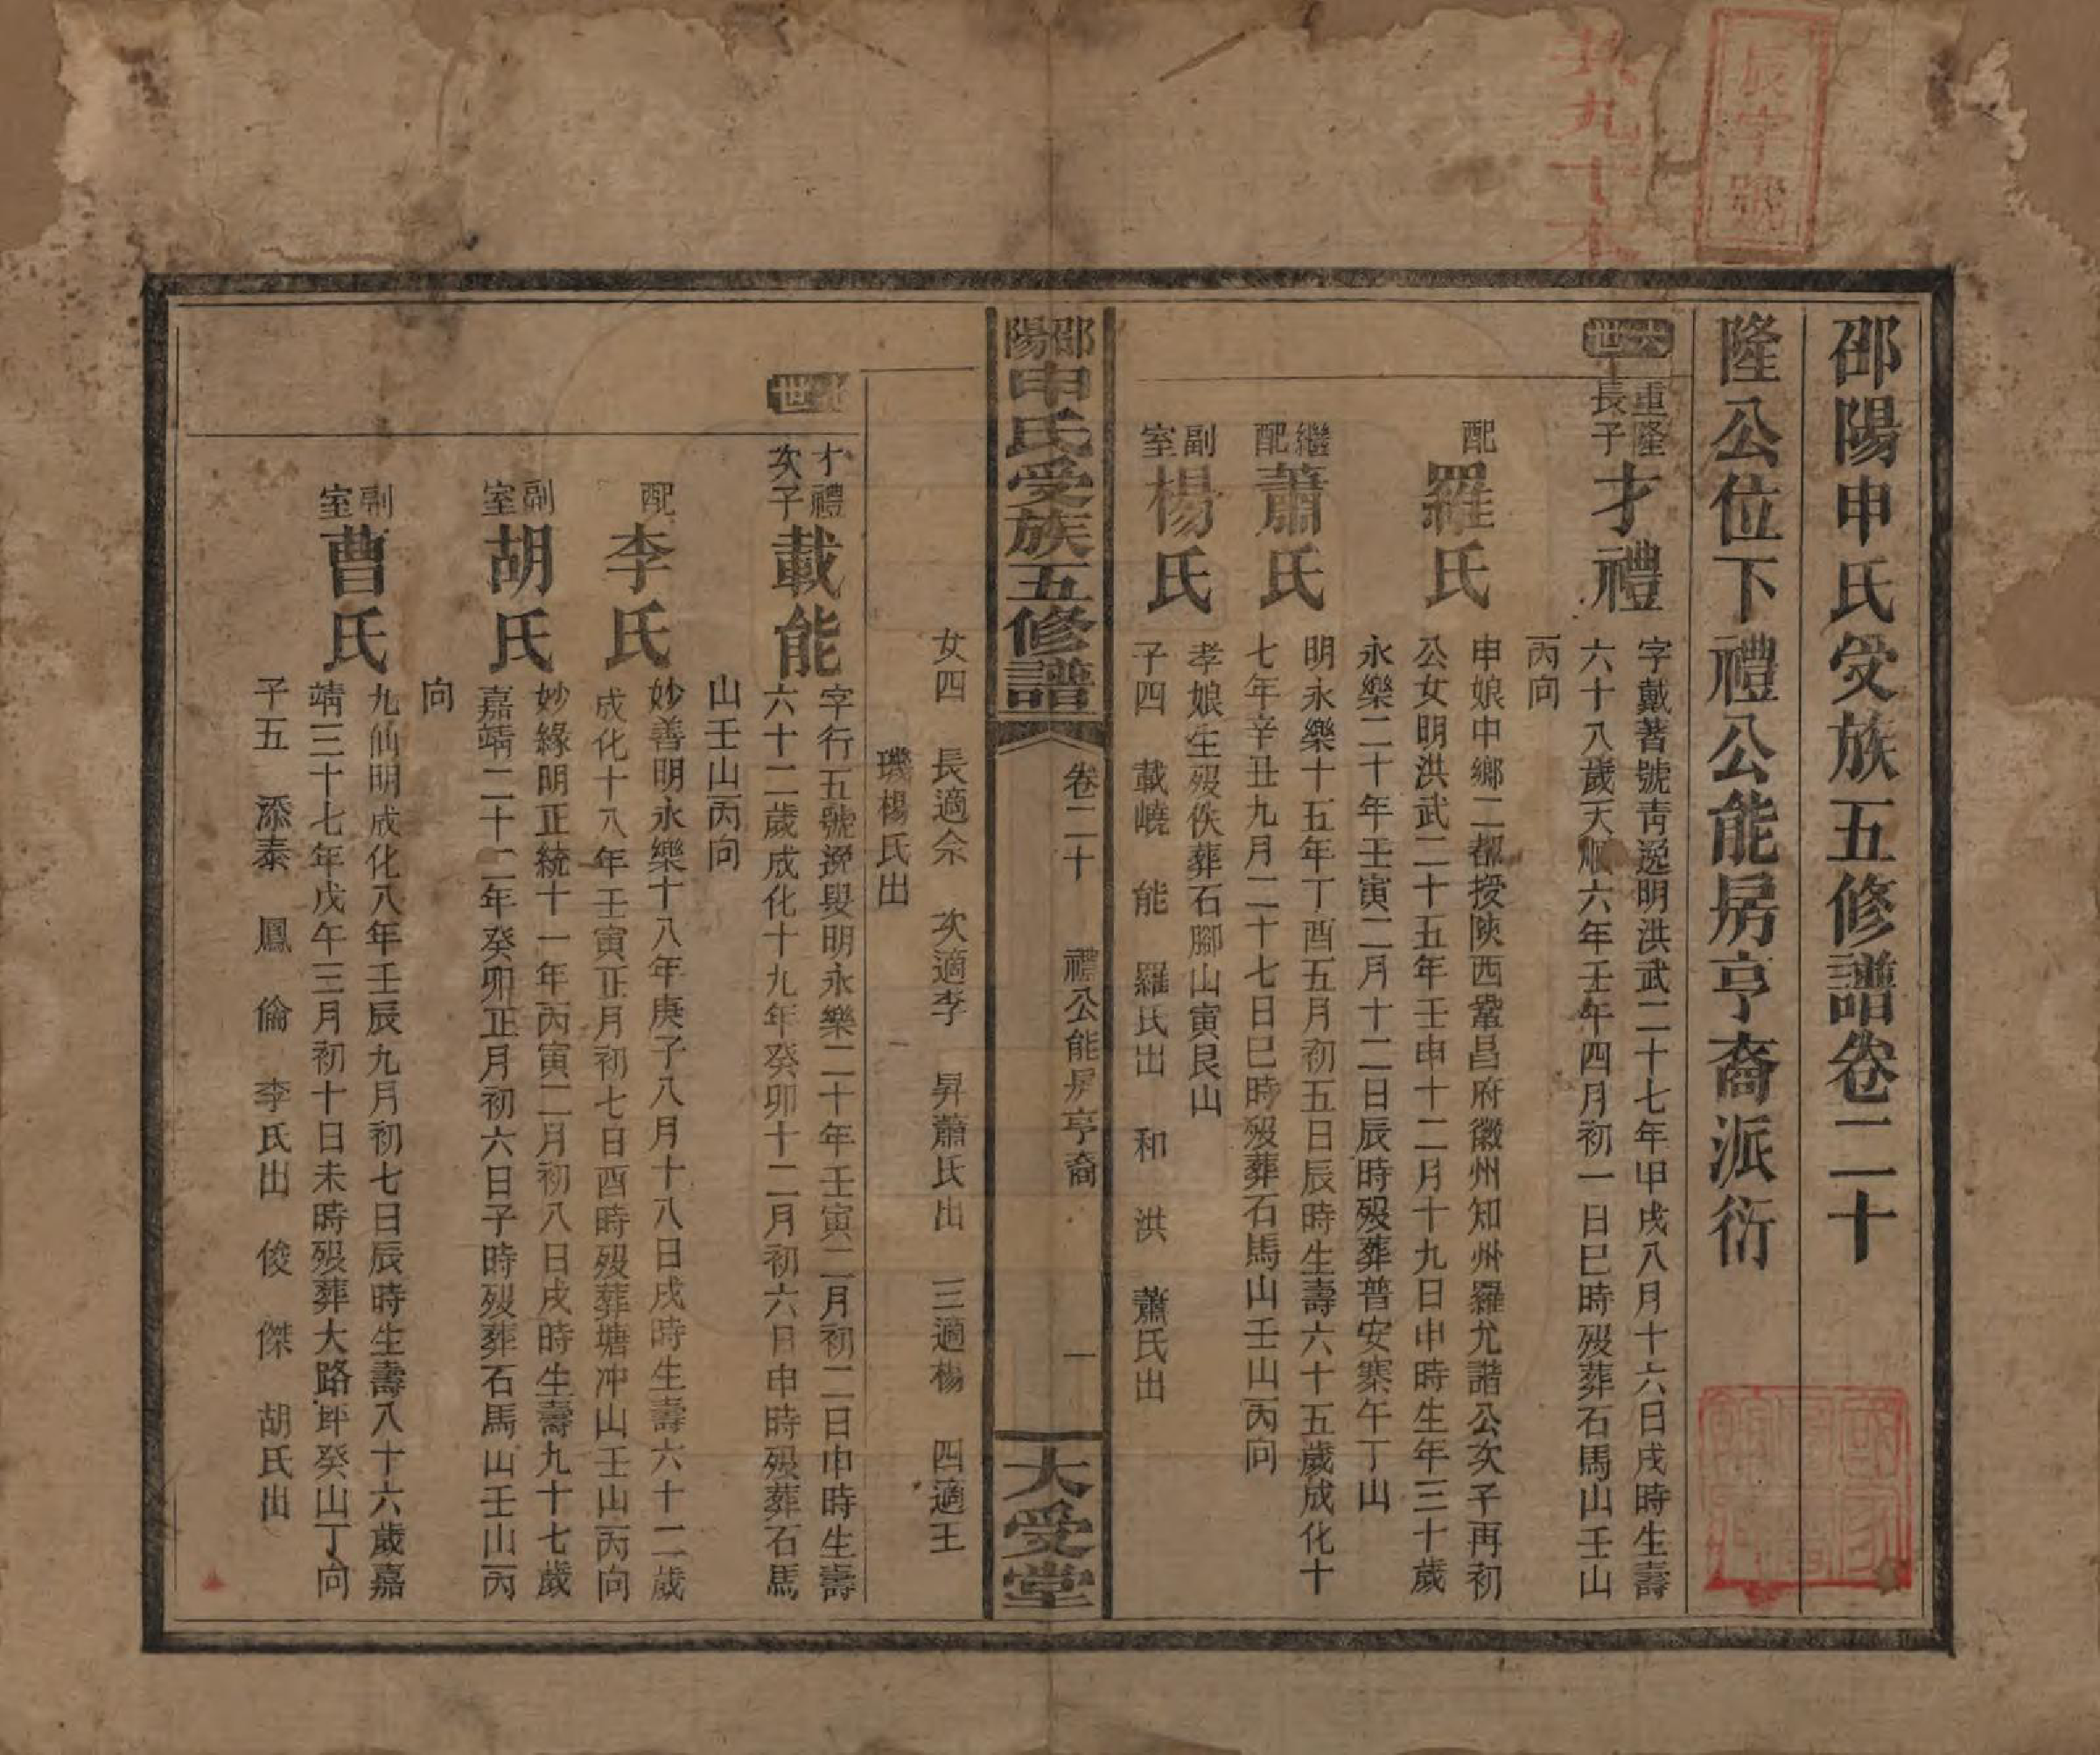 辰字號
共九十本
邵陽申氏受族五修譜卷二十
隆公位下禮公能房亨裔派衍
六世
重隆長子
才禮
字戴著號靑逸明洪武二十七年甲戌八月十六日戌時生壽
六十八歲天順六年壬午四月初一日巳時歿葬石馬山壬山
丙向
配
羅氏
申娘中鄉二都授陝西鞏昌府徽州知州羅允諧公次子再初
公女明洪武二十五年壬申十二月十九日申時生年三十歲
永樂二十年壬寅二月十二日辰時歿葬普安寨午丁山
繼配
蕭氏
明永樂十五年丁酉五月初五日辰時生壽六十五歲成化十
七年辛丑九月二十七日巳時歿葬石馬山壬山丙向
副室
楊氏
孝娘生歿佚葬石腳山寅艮山
子四 載嶢 能 羅氏出 和 洪 蕭氏出
邵陽申氏受族五修譜
卷二十 禮公能房亨裔
一
大受堂
女四 長適佘 次適李 昇蕭氏出 三適楊 四適王
璣楊氏出
世
才禮次子
載能
字行五號逸叟明永樂二十年壬寅二月初二日申時生壽
六十二歲成化十九年癸卯十二月初六日申時歿葬石馬
山壬山丙向
配
李氏
妙善明永樂十八年庚子八月十八日戌時生壽六十二歲
成化十八年壬寅正月初七日酉時歿葬塘冲山壬山丙向
副室
胡氏
妙緣明正統十一年丙寅二月初八日戌時生壽九十七歲
嘉靖二十二年癸卯正月初六日子時歿葬石馬山壬山丙
向
副室
曹氏
九仙明成化八年壬辰九月初七日辰時生壽八十六歲嘉
靖三十七年戊午三月初十日未時歿葬大路坪癸山丁向
子五 添泰 鳳 倫 李氏出 俊 傑 胡氏出